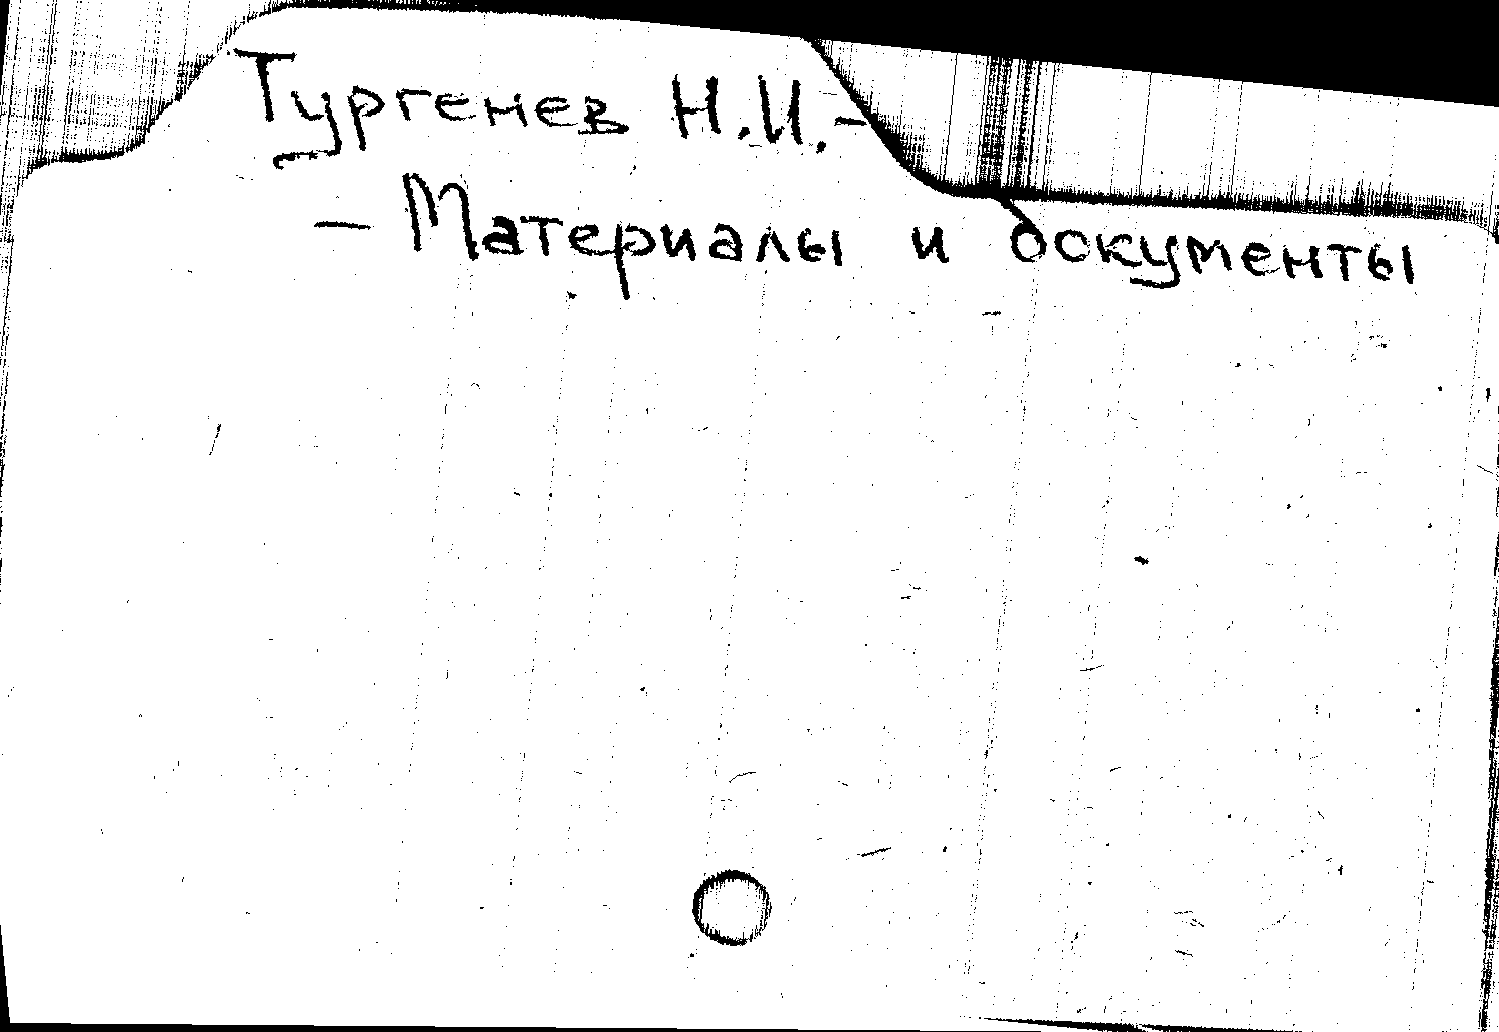 Тургенев Н.И. -
- Материалы и документы